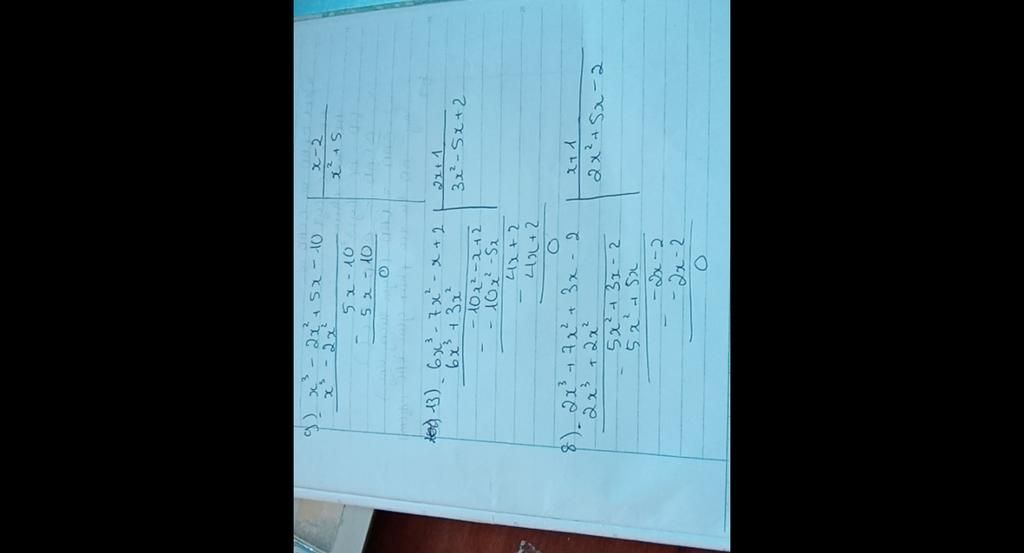 9) - x³ - 2x² + 5x - 10 | x - 2
x³ - 2x² x² + 5
- 5x - 10
5x - 10
0
13) - 6x³ - 7x² - x + 2 | 2x + 1
6x³ + 3x² 3x² - 5x + 2
- -10x² - x + 2
-10x² - 5x
- 4x + 2
4x + 2
0
8) - 2x³ + 7x² + 3x - 2 | x + 1
2x³ + 2x² 2x² + 5x - 2
- 5x² + 3x - 2
5x² + 5x
- -2x - 2
-2x - 2
0